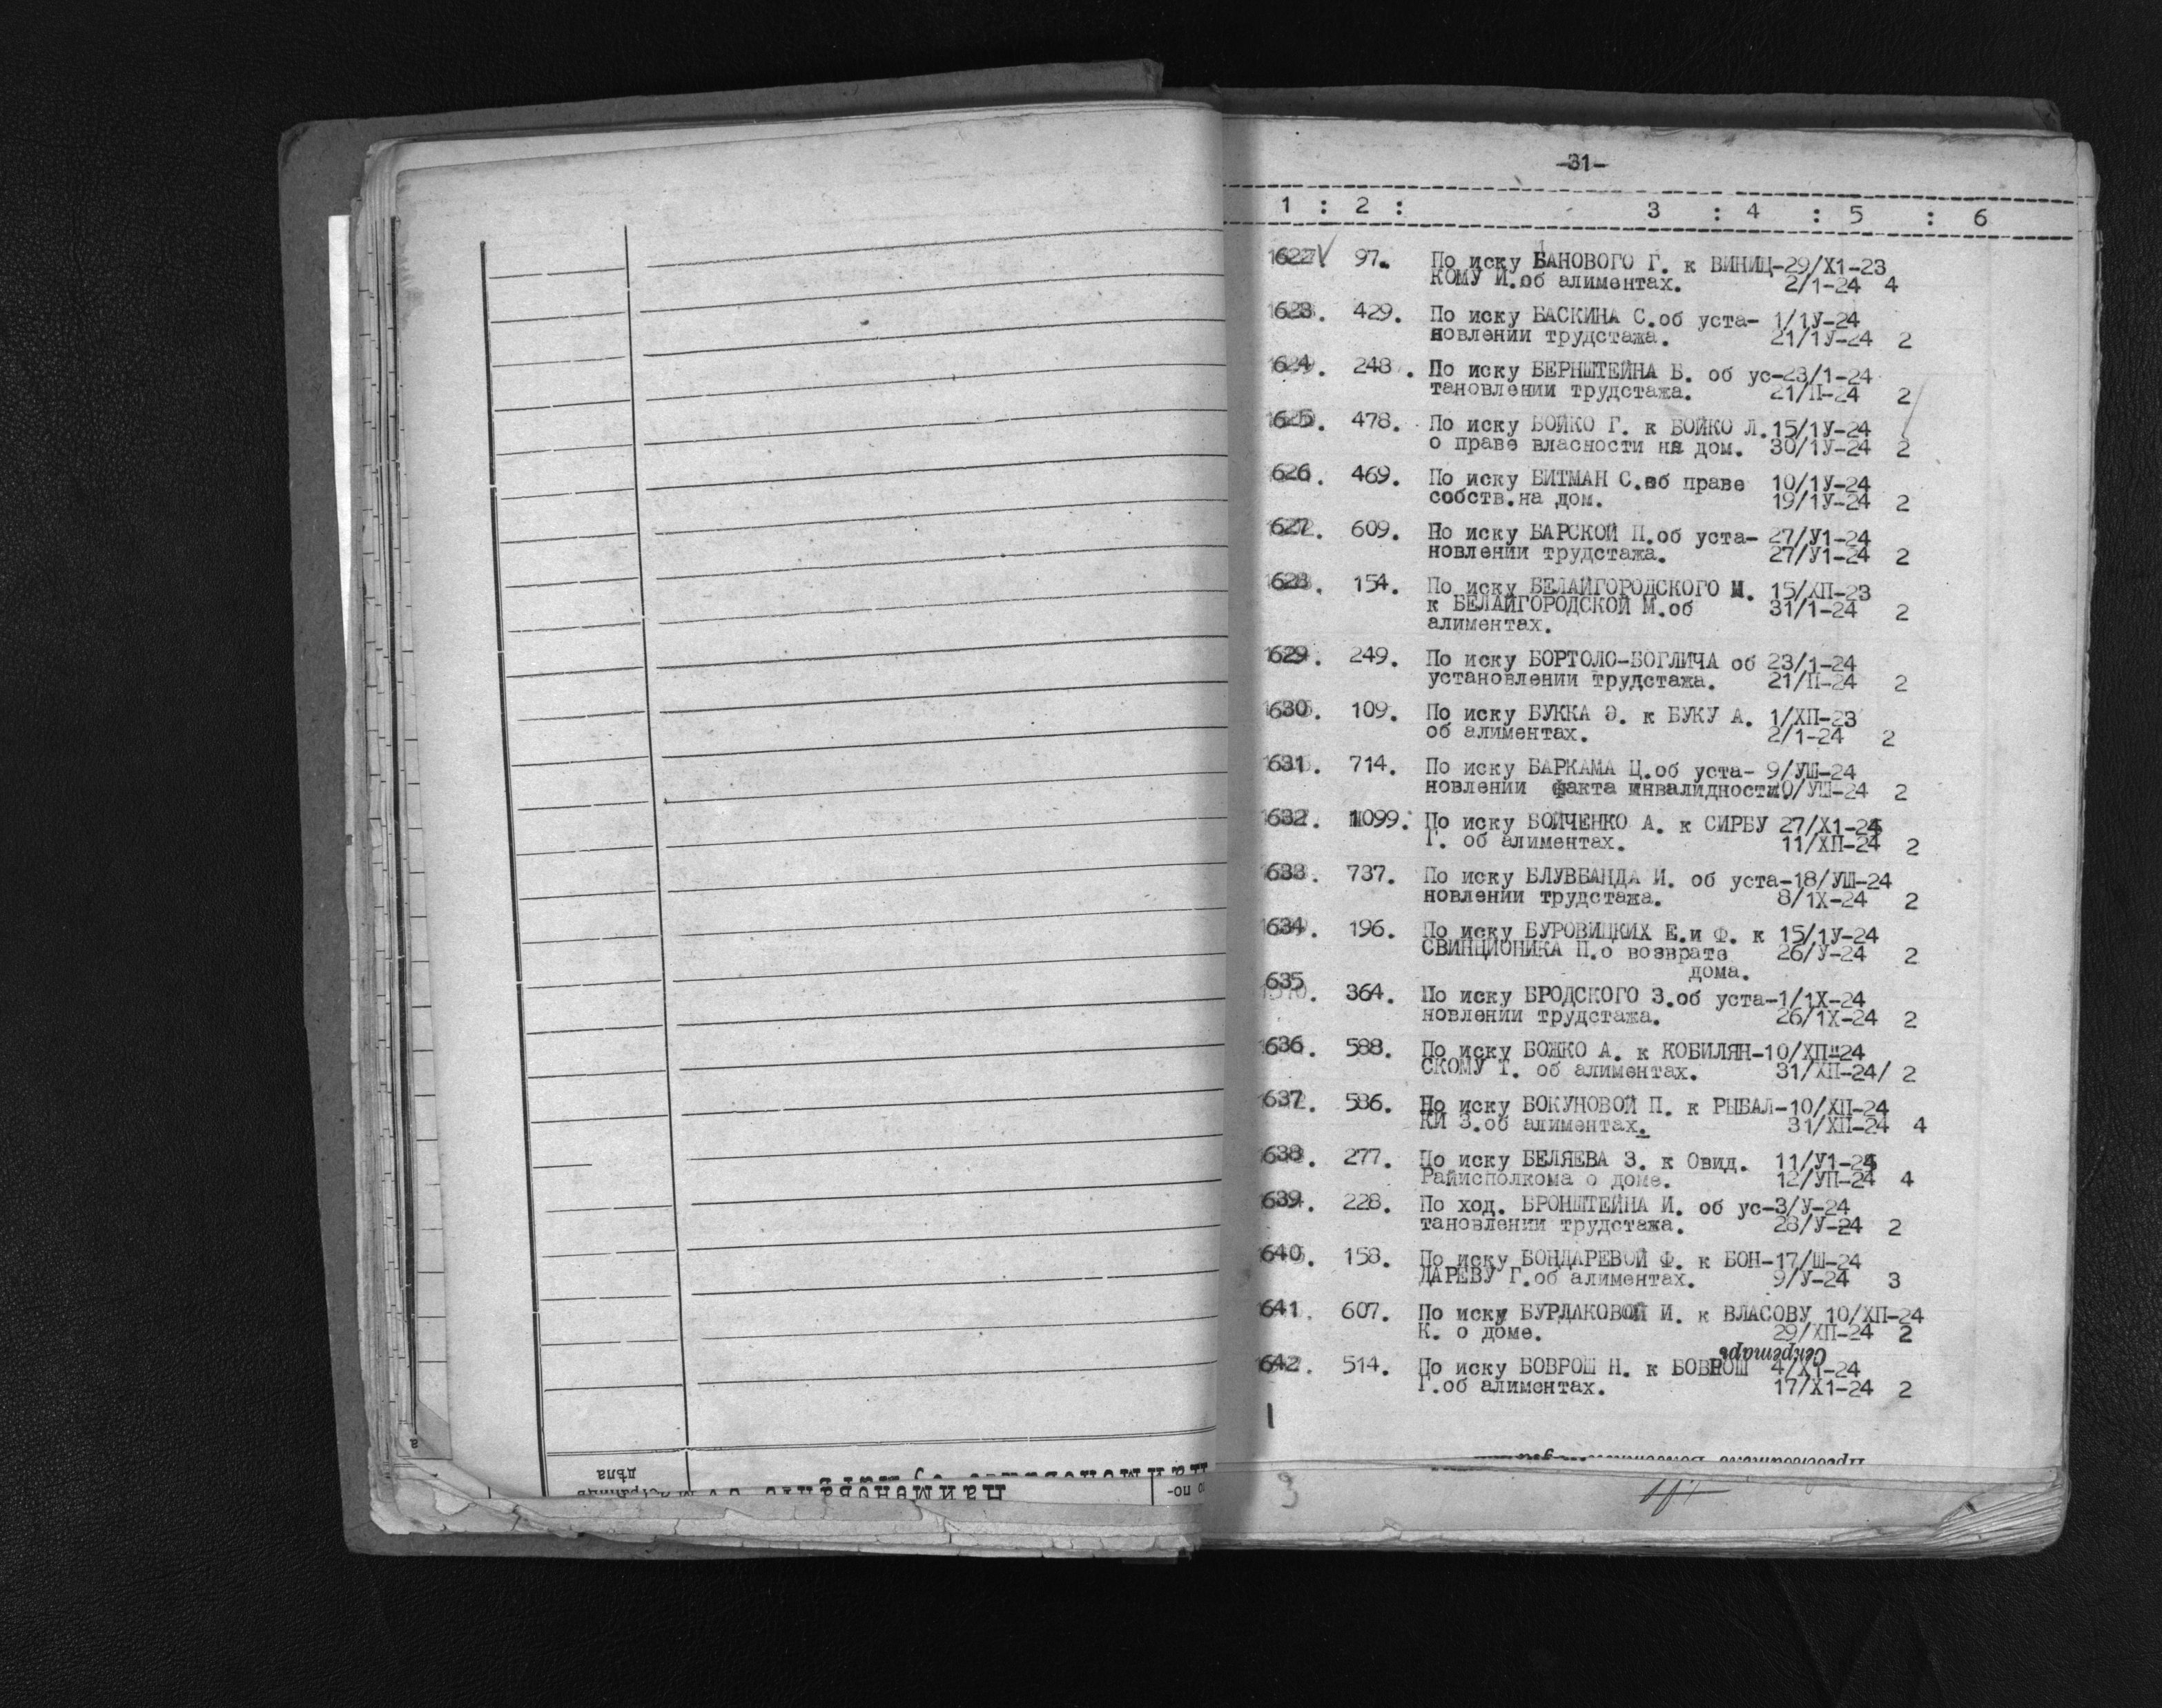 -31-
1 : 2 : 3 : 4 : 5 : 6
1622. 97. По иску БАНОВОГО Г. к ВИНИЦ-29/Х1-23
КОМУ И.об алиментах. 2/1-24 4
623. 429. По иску БАСКИНА С.об уста- 1/1У-24
новлении трудстажа. 21/1У-24 2
624. 248. По иску БЕРНШТЕЙНА Б. об ус-23/1-24
тановлении трудстажа. 21/П-24 2
625. 478. По иску БОЙКО Г. к БОЙКО Л.15/1У-24
о праве власности на дом. 30/1У-24 2
626. 469. По иску БИТМАН С.об праве 10/1У-24
собств.на дом. 19/1У-24 2
627. 609. По иску БАРСКОЙ П.об уста- 27/У1-24
новлении трудстажа. 27/У1-24 2
628. 154. По иску БЕЛАЙГОРОДСКОГО М. 15/ХП-23
к БЕЛАЙГОРОДСКОЙ М.об 31/1-24 2
алиментах.
629. 249. По иску БОРТОЛО-БОГЛИЧА об 23/1-24
установлении трудстажа. 21/П-24 2
630. 109. По иску БУККА Э. к БУКУ А. 1/ХП-23
об алиментах. 2/1-24 2
631. 714. По иску БАРКАМА Ц.об уста- 9/УШ-24
новлении факта инвалидности.0/УШ-24 2
632. 1099. По иску БОЙЧЕНКО А. к СИРБУ 27/Х1-24
Г. об алиментах. 11/ХП-24 2
633. 737. По иску БЛУВБАНДА И. об уста-18/УШ-24
новлении трудстажа. 8/1Х-24 2
634. 196. По иску БУРОВИЦКИХ Е.и Ф. к 15/1У-24
СВИНЦИОНИКА П.о возврате 26/У-24 2
дома.
635. 364. По иску БРОДСКОГО З.об уста-1/1Х-24
новлении трудстажа. 26/1Х-24 2
636. 588. По иску БОЖКО А. к КОБИЛЯН-10/ХП-24
СКОМУ Т. об алиментах. 31/ХП-24/ 2
637. 586. По иску БОКУНОВОЙ П. к РЫБАЛ-10/ХП-24
КИ З.об алиментах. 31/ХП-24 4
638. 277. По иску БЕЛЯЕВА З. к Овид. 11/У1-24
Райисполкома о доме. 12/УП-24 4
639. 228. По ход. БРОНШТЕЙНА И. об ус-3/У-24
тановлении трудстажа. 28/У-24 2
640. 158. По иску БОНДАРЕВОЙ Ф. к БОН-17/Ш-24
ДАРЕВУ Г.об алиментах. 9/У-24 3
641. 607. По иску БУРДАКОВОЙ И. к ВЛАСОВУ 10/ХП-24
К. о доме. 29/ХП-24 2
Секретарь
642. 514. По иску БОВРОШ Н. к БОВРОШ 4/Х1-24
Г.об алиментах. 17/Х1-24 2
дѣла
Наименованіе